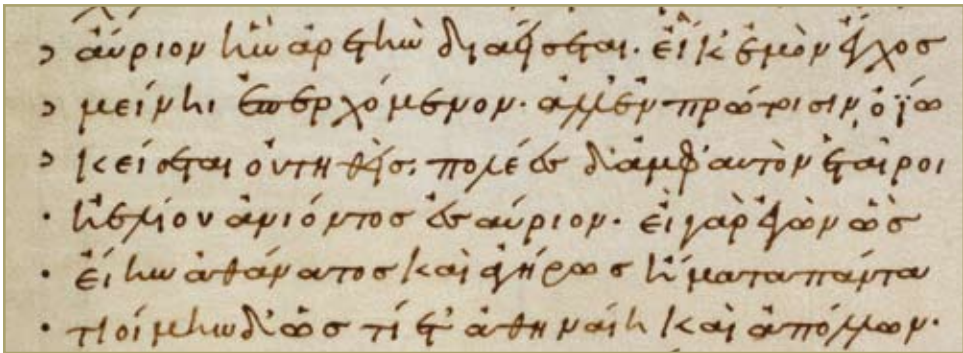 ͻ αὔριον ἣν ἀρετὴν διαείσεται· εἴ κ' ἐμὸν ἔγχος
ͻ μείνηι ἐπερχόμενον· ἀλλ' ἐν πρώτοισιν ὀΐω
ͻ κείσεται οὐτηθείς. πολέες δ' ἀμφ' αὐτὸν ἑταῖροι
· ἠελίου ἀνιόντος ἐς αὔριον· εἰ γὰρ ἐγὼν ὣς
· εἴην ἀθάνατος καὶ ἀγήρως ἤματα πάντα
· τιοίμην δ' ὡς τίετ' ἀθηναίη καὶ ἀπόλλων·